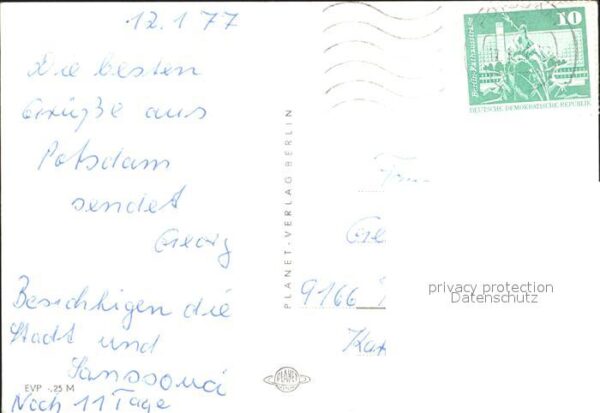 12.1.77
Die besten
Grüße aus
Potsdam
sendet
Georg
Besichtigen die
Stadt und
Sanssouci
Noch 11 Tage
EVP -,25 M
PLANET-VERLAG BERLIN
PLANET
10
Berlin, Rathausstraße
DEUTSCHE DEMOKRATISCHE REPUBLIK
9166
privacy protection
Datenschutz